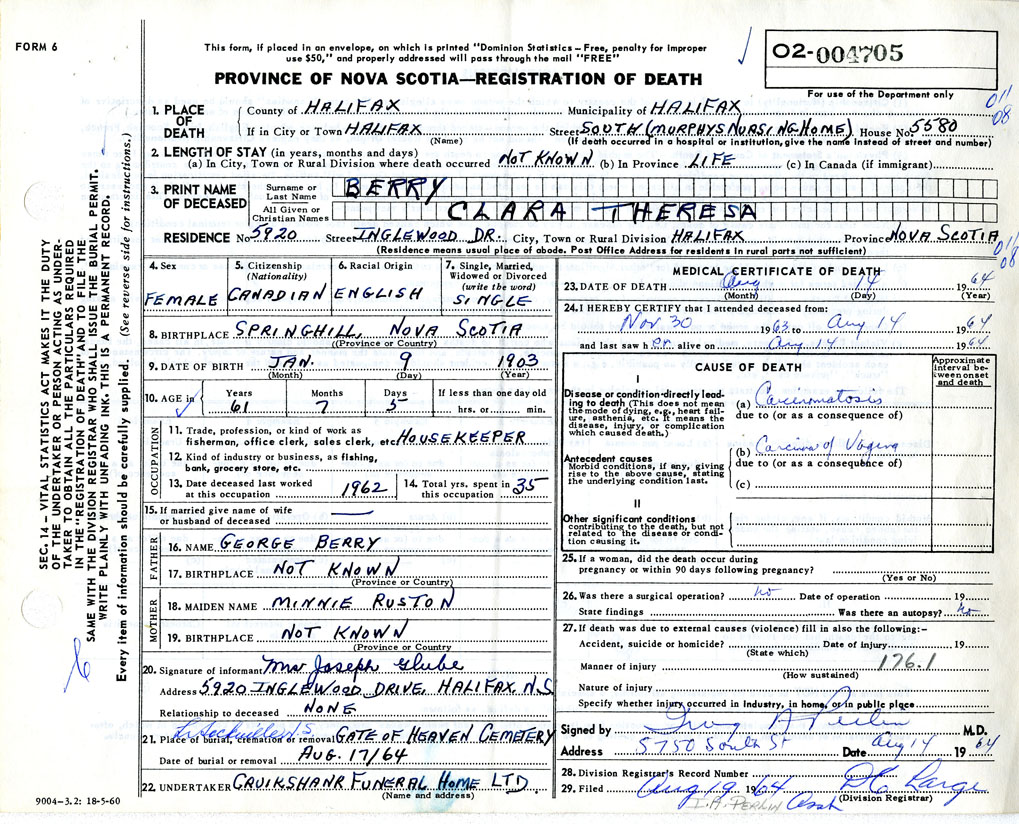 FORM 6
This form, if placed in an envelope, on which is printed "Dominion Statistics – Free, penalty for improper
use $50," and properly addressed will pass through the mail "FREE"
02-004705
For use of the Department only
011
08
PROVINCE OF NOVA SCOTIA—REGISTRATION OF DEATH
1. PLACE OF DEATH
County of HALIFAX Municipality of HALIFAX
If in City or Town HALIFAX Street SOUTH (MURPHYS NURSING HOME) House No. 5580
(Name) (If death occurred in a hospital or institution, give the name instead of street and number)
2. LENGTH OF STAY (in years, months and days)
(a) In City, Town or Rural Division where death occurred NOT KNOWN (b) In Province LIFE (c) In Canada (if immigrant)
3. PRINT NAME OF DECEASED
Surname or Last Name BERRY
All Given or Christian Names CLARA THERESA
RESIDENCE No 5920 Street INGLEWOOD DR. City, Town or Rural Division HALIFAX Province NOVA SCOTIA
(Residence means usual place of abode. Post Office Address for residents in rural parts not sufficient)
011
08
4. Sex FEMALE
5. Citizenship (Nationality) CANADIAN
6. Racial Origin ENGLISH
7. Single, Married, Widowed or Divorced (write the word) SINGLE
8. BIRTHPLACE SPRINGHILL, NOVA SCOTIA
(Province or Country)
9. DATE OF BIRTH JAN. 9 1903
(Month) (Day) (Year)
10. AGE in Years 61 Months 7 Days 5 If less than one day old hrs. or min.
OCCUPATION
11. Trade, profession, or kind of work as
fisherman, office clerk, sales clerk, etc. HOUSEKEEPER
12. Kind of industry or business, as fishing,
bank, grocery store, etc.
13. Date deceased last worked at this occupation 1962
14. Total yrs. spent in this occupation 35
15. If married give name of wife
or husband of deceased —
FATHER
16. NAME GEORGE BERRY
17. BIRTHPLACE NOT KNOWN
(Province or Country)
MOTHER
18. MAIDEN NAME MINNIE RUSTON
19. BIRTHPLACE NOT KNOWN
(Province or Country)
20. Signature of informant Mrs Joseph Glube
Address 5920 INGLEWOOD DRIVE, HALIFAX N.S
Relationship to deceased NONE
Lr Sackville N.S.
21. Place of burial, cremation or removal GATE OF HEAVEN CEMETERY
Date of burial or removal AUG. 17/64
22. UNDERTAKER CRUIKSHANK FUNERAL HOME LTD.
(Name and address)
MEDICAL CERTIFICATE OF DEATH
23. DATE OF DEATH Aug 14 1964
(Month) (Day) (Year)
24. I HEREBY CERTIFY that I attended deceased from:
Nov. 30 1963 to Aug 14 1964
and last saw her alive on Aug 14 1964
CAUSE OF DEATH
Approximate interval between onset and death
I
Disease or condition directly leading to death (This does not mean the mode of dying, e.g., heart failure, asthenia, etc. It means the disease, injury, or complication which caused death.)
(a) Carcinomatosis
due to (or as a consequence of)
Antecedent causes
Morbid conditions, if any, giving rise to the above cause, stating the underlying condition last.
(b) Carcinoma of Vagina
due to (or as a consequence of)
(c)
II
Other significant conditions
contributing to the death, but not related to the disease or condition causing it.
25. If a woman, did the death occur during
pregnancy or within 90 days following pregnancy?
(Yes or No)
26. Was there a surgical operation? no Date of operation 19
State findings Was there an autopsy? No
27. If death was due to external causes (violence) fill in also the following:–
Accident, suicide or homicide? Date of injury 19
(State which)
Manner of injury 176.1
(How sustained)
Nature of injury
Specify whether injury occurred in Industry, in home, or in public place
Signed by Irving A Perlin M.D.
Address 5750 South St Date Aug 14 1964
28. Division Registrar's Record Number
29. Filed Aug 19 1964 DC Large
I.A. PERLIN Asst (Division Registrar)
9004–3.2: 18-5-60
SEC. 14 – VITAL STATISTICS ACT MAKES IT THE DUTY
OF THE UNDERTAKER OR PERSON ACTING AS UNDER-
TAKER TO OBTAIN ALL THE PARTICULARS REQUIRED
IN THE "REGISTRATION OF DEATH" AND TO FILE THE
SAME WITH THE DIVISION REGISTRAR WHO SHALL ISSUE THE BURIAL PERMIT.
WRITE PLAINLY WITH UNFADING INK. THIS IS A PERMANENT RECORD.
Every item of information should be carefully supplied. (See reverse side for instructions.)